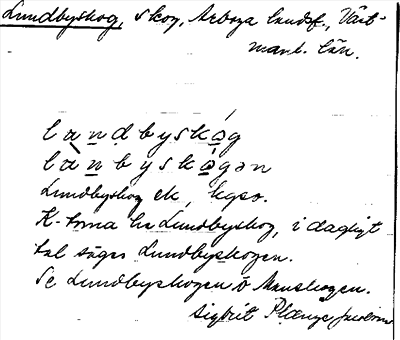 Lundbyskog, skog, Arboga landsf., Väst-
manl. län.
lan̠d̠byskǫ́g
làn̠byskǫ́gən
Lundbyskog ek, kgso.
K-torna har Lundbyskog, i dagligt
tal säges Lundbyskogen.
Se Lundbyskogen ö Monskogen.
Sigbrit Plænge Jacobson